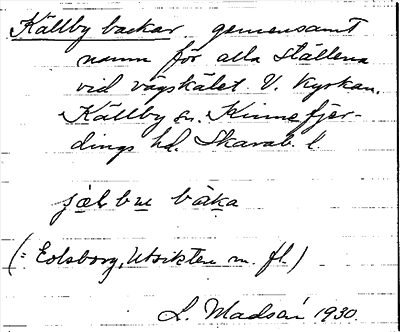 Källby backar gemensamt
namn för alla ställena
vid vägskälet V. Kyrkan.
Källby sn. Kinnefjer-
dings hd. Skarab. l.
jæl bu baka
(: Eolsborg, Utsikten m. fl.)
L. Madsén 1930.